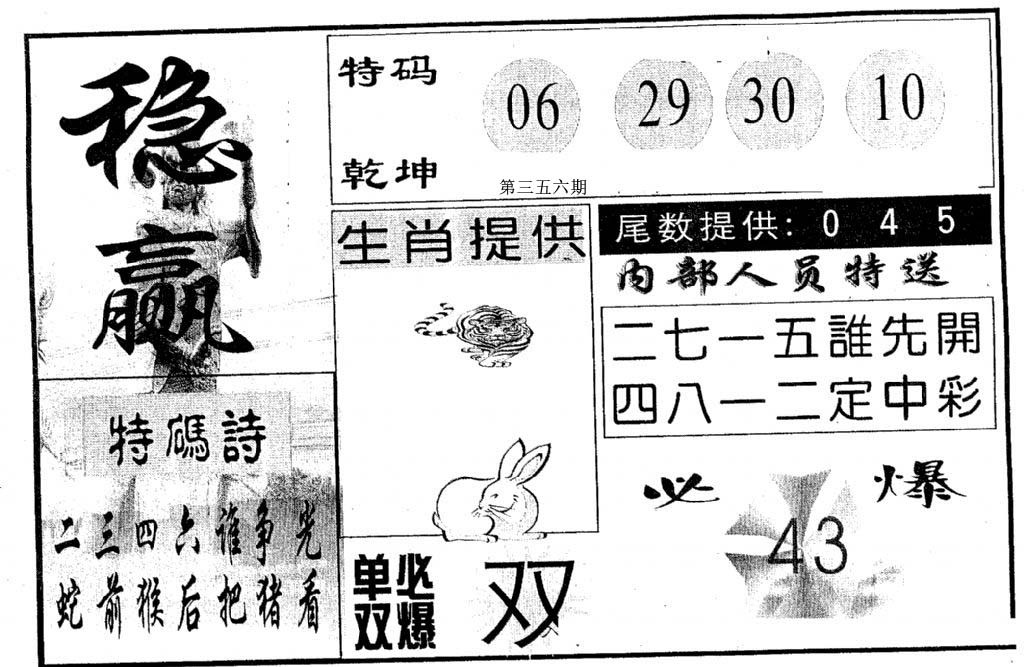 稳赢
特码
乾坤
06 29 30 10
第三五六期
特碼詩
二三四六谁争光
蛇前猴后把猪看
生肖提供
单双必爆
双
尾数提供: 0 4 5
内部人员特送
二七一五誰先開
四八一二定中彩
必爆
43